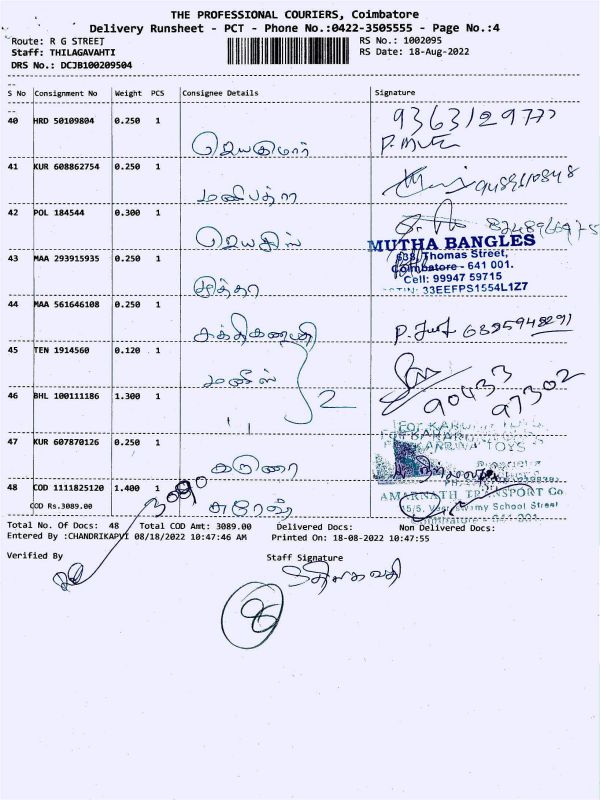 THE PROFESSIONAL COURIERS, Coimbatore
Delivery Runsheet - PCT - Phone No.:0422-3505555 - Page No.:4
Route: R G STREET
Staff: THILAGAVAHTI
DRS No.: DCJB100209504
RS No.: 1002095
RS Date: 18-Aug-2022
S No Consignment No Weight PCS Consignee Details Signature
40 HRD 50109804 0.250 1 ஜெயகுமார் 9363129777
41 KUR 608862754 0.250 1
42 POL 184544 0.300 1
MUTHA BANGLES
Thomas Street,
Coimbatore - 641 001.
Cell: 99947 59715
33EEFPS1554L1Z7
43 MAA 293915935 0.250 1 முத்தா
44 MAA 561646108 0.250 1 சக்திகணபதி
45 TEN 1914560 0.120 1 மனிஸ் 90433
97302
46 BHL 100111186 1.300 1 " 2
47 KUR 607870126 0.250 1 கருணா
48 COD 1111825120 1.400 1 சுரேஷ்
COD Rs.3089.00 3090
AMARNATH TRANSPORT Co
Swamy School Street
Total No. Of Docs: 48 Total COD Amt: 3089.00 Delivered Docs: Non Delivered Docs:
Entered By :CHANDRIKAPVI 08/18/2022 10:47:46 AM Printed On: 18-08-2022 10:47:55
Verified By Staff Signature